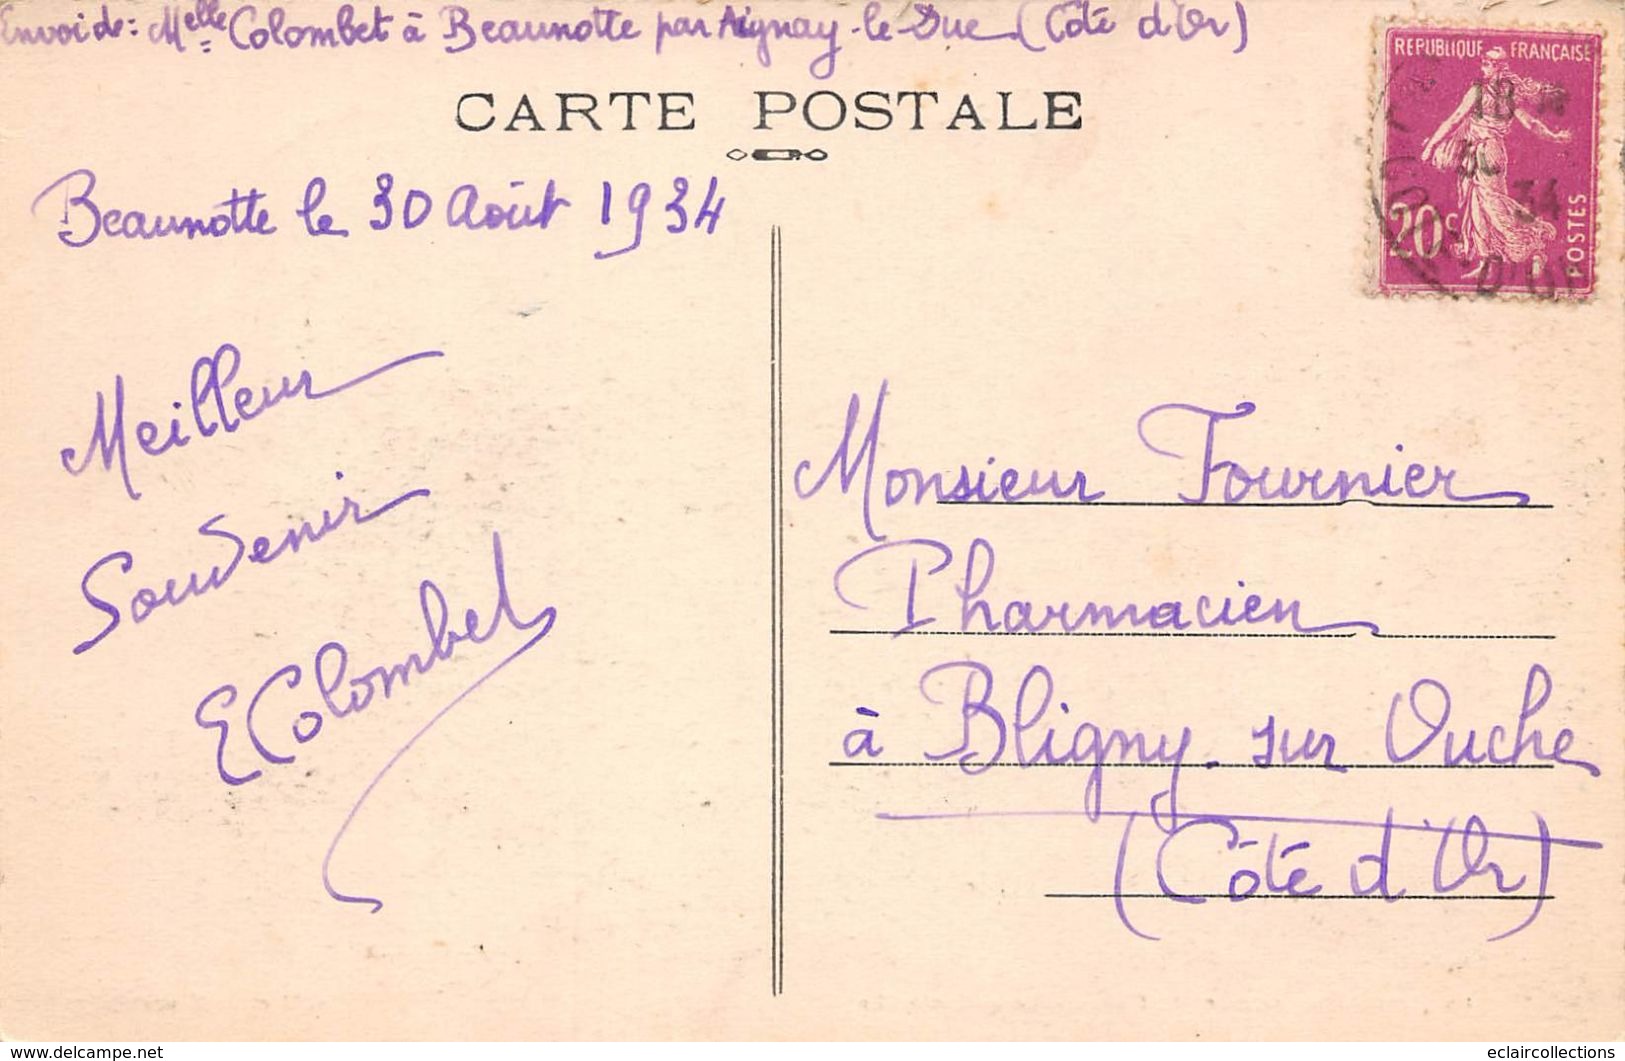 Envoi de: Melle Colombet à Beaunotte par Aignay-le-Duc (Côte d'Or)
CARTE POSTALE
REPUBLIQUE FRANÇAISE
18
30
34
20c
POSTES
D'OR
Beaunotte le 30 Août 1934
Meilleur
Souvenir
E Colombet
Monsieur Fournier
Pharmacien
à Bligny-sur Ouche
(Côte d'Or)
eclaircollections
www.delcampe.net